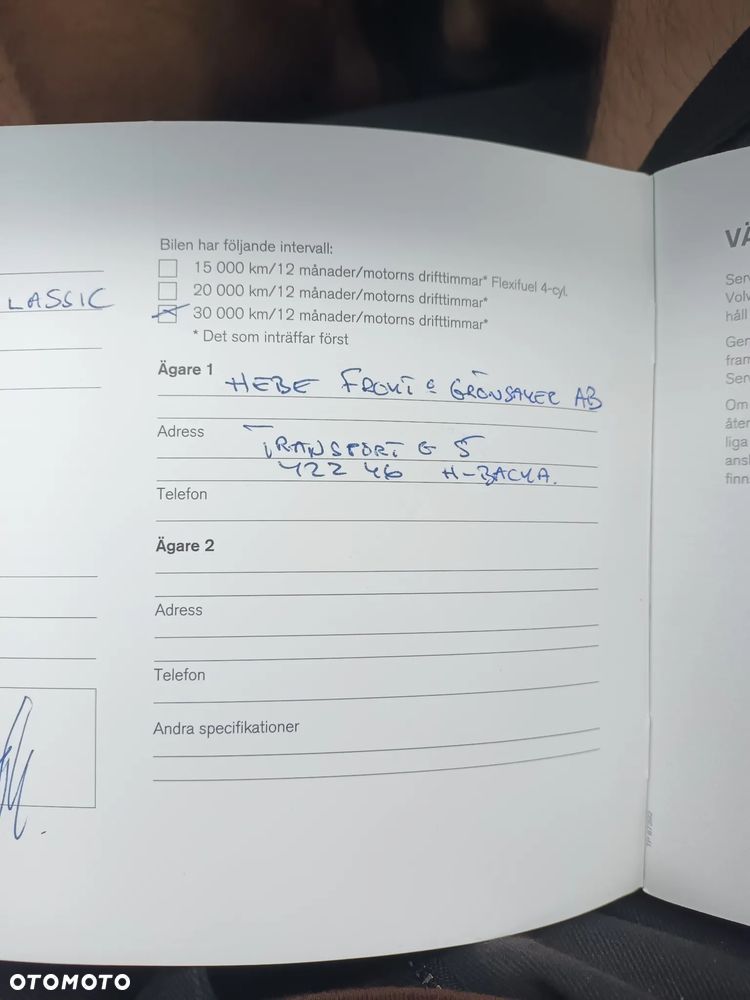 LASSIC
Bilen har följande intervall:
15 000 km/12 månader/motorns drifttimmar* Flexifuel 4-cyl.
20 000 km/12 månader/motorns drifttimmar*
30 000 km/12 månader/motorns drifttimmar*
* Det som inträffar först
Ägare 1 HEBE FRUKT & GRÖNSAKER AB
Adress TRANSPORT G 5
422 46 H-BACKA.
Telefon
Ägare 2
Adress
Telefon
Andra specifikationer
VÄ
Ser
Volv
håll
Ger
fram
Ser
Om
åter
liga
ansl
finn
OTOMOTO